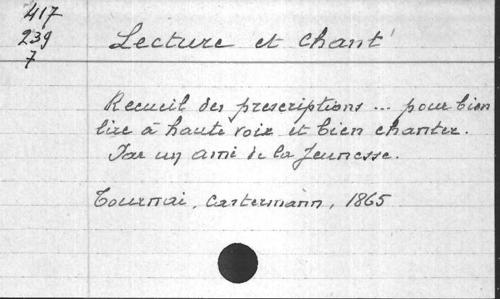 417
239
7
Lecture et chant
Recueil des prescriptions ... pour bien
lire à haute voix et bien chanter.
Par un ami de la Jeunesse.
Tournai, Castermann, 1865